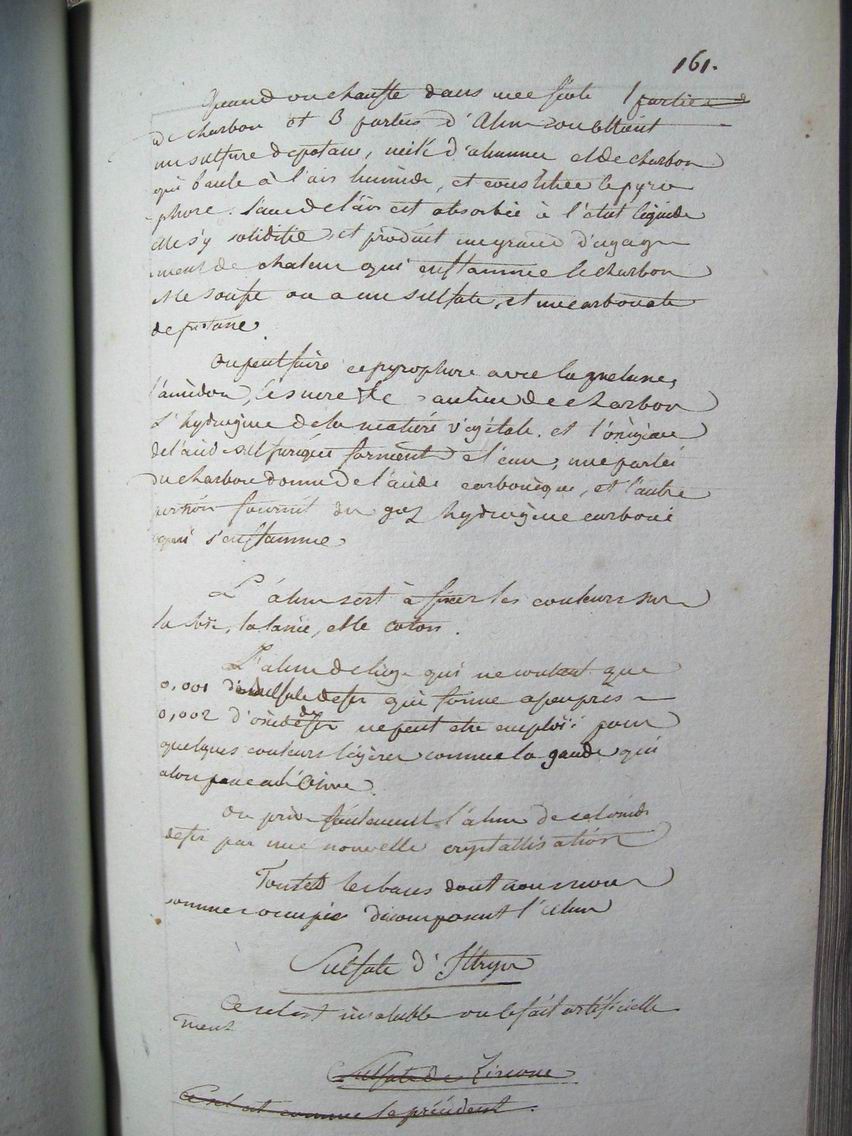 161.
Quand on chauffe dans une fiole 1 partie
de charbon et 3 parties d'Alun on obtient
un sulfure de potasse, mêlé d'alumine et de charbon
qui brule à l'air humide, et constitue le pyro
phore. l'eau de l'air est absorbée à l'état liquide
elle s'y solidifie, et produit un grand dégage
ment de chaleur qui enflamme le charbon
et le soufre on a un sulfate, et un carbonate
de potasse.
On peut faire ce pyrophore avec la melasse,
l'amidon, le sucre &c au lieu de charbon
L'hydrogène de la matière végétale. et l'oxigène
de l'acide sulfurique forment de l'eau, une partie
du charbon donne de l'acide carbonique, et l'autre
portion fournit du gaz hydrogène carboné
qui s'enflamme.
L'alun sert à fixer les couleurs sur
la soie, la laine, et le coton.
L'alun de liège qui ne contient que
0,001 de sulfate de fer qui forme a peu près
0,002 d'oxide de fer ne peut etre emploié pour
quelques couleurs légères comme la gaude qui
alors passe a l'Olive.
On prive facilement l'alun de cet oxide
de fer par une nouvelle crystallisation
Toutes les bases dont nous nous
sommes occupés décomposent l'alun
Sulfate d'Ittrya
Ce sel est insoluble on le fait artificielle
ment
Sulfate de Zircone
Ce sel est comme le précédent.